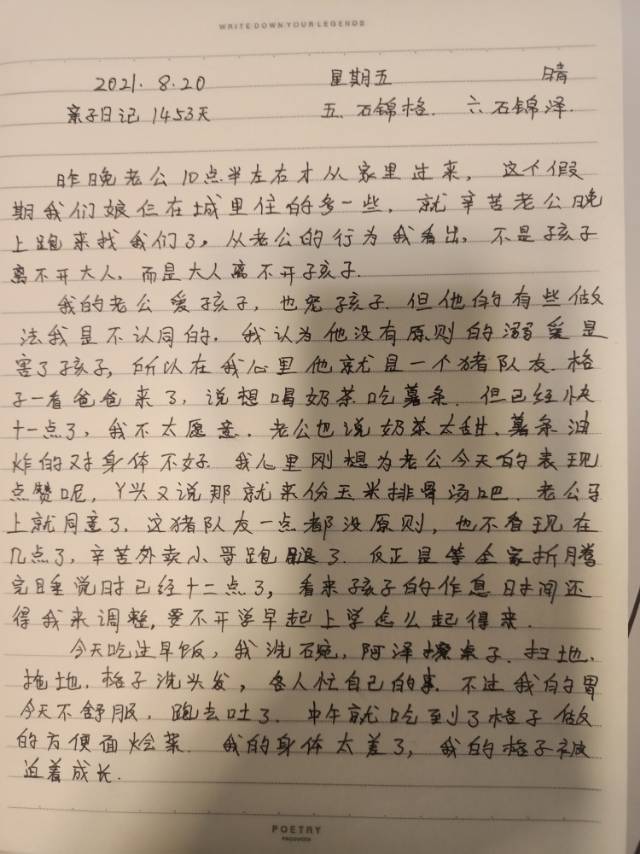 WRITE DOWN YOUR LEGENDS
2021. 8.20 星期五 晴
亲子日记 1453天 五.石锦格. 六石锦泽.
昨晚老公10点半左右才从家里过来，这个假
期我们娘仨在城里住的多一些，就辛苦老公晚
上跑来找我们了，从老公的行为我看出，不是孩子
离不开大人，而是大人离不开孩子.
我的老公爱孩子，也宠孩子.但他的有些做
法我是不认同的，我认为他没有原则的溺爱是
害了孩子，所以在我心里他就是一个猪队友.格
子一看爸爸来了，说想喝奶茶吃薯条.但已经快
十一点了，我不太愿意.老公也说奶茶太甜、薯条油
炸的对身体不好.我心里刚想为老公今天的表现
点赞呢，丫头又说那就来份玉米排骨汤吧.老公马
上就同意了.这猪队友一点都没原则，也不看现在
几点了，辛苦外卖小哥跑腿了.反正是等全家折腾
完睡觉时已经十二点了，看来孩子的作息时间还
得我来调整，要不开学早起上学怎么起得来.
今天吃过早饭，我洗碗，阿泽擦桌子.扫地.
拖地.格子洗头发，各人忙自己的事.不过我的胃
今天不舒服，跑去吐了.中午就吃到了格子做
的方便面烩菜.我的身体太差了，我的格子被
迫着成长.
POETRY